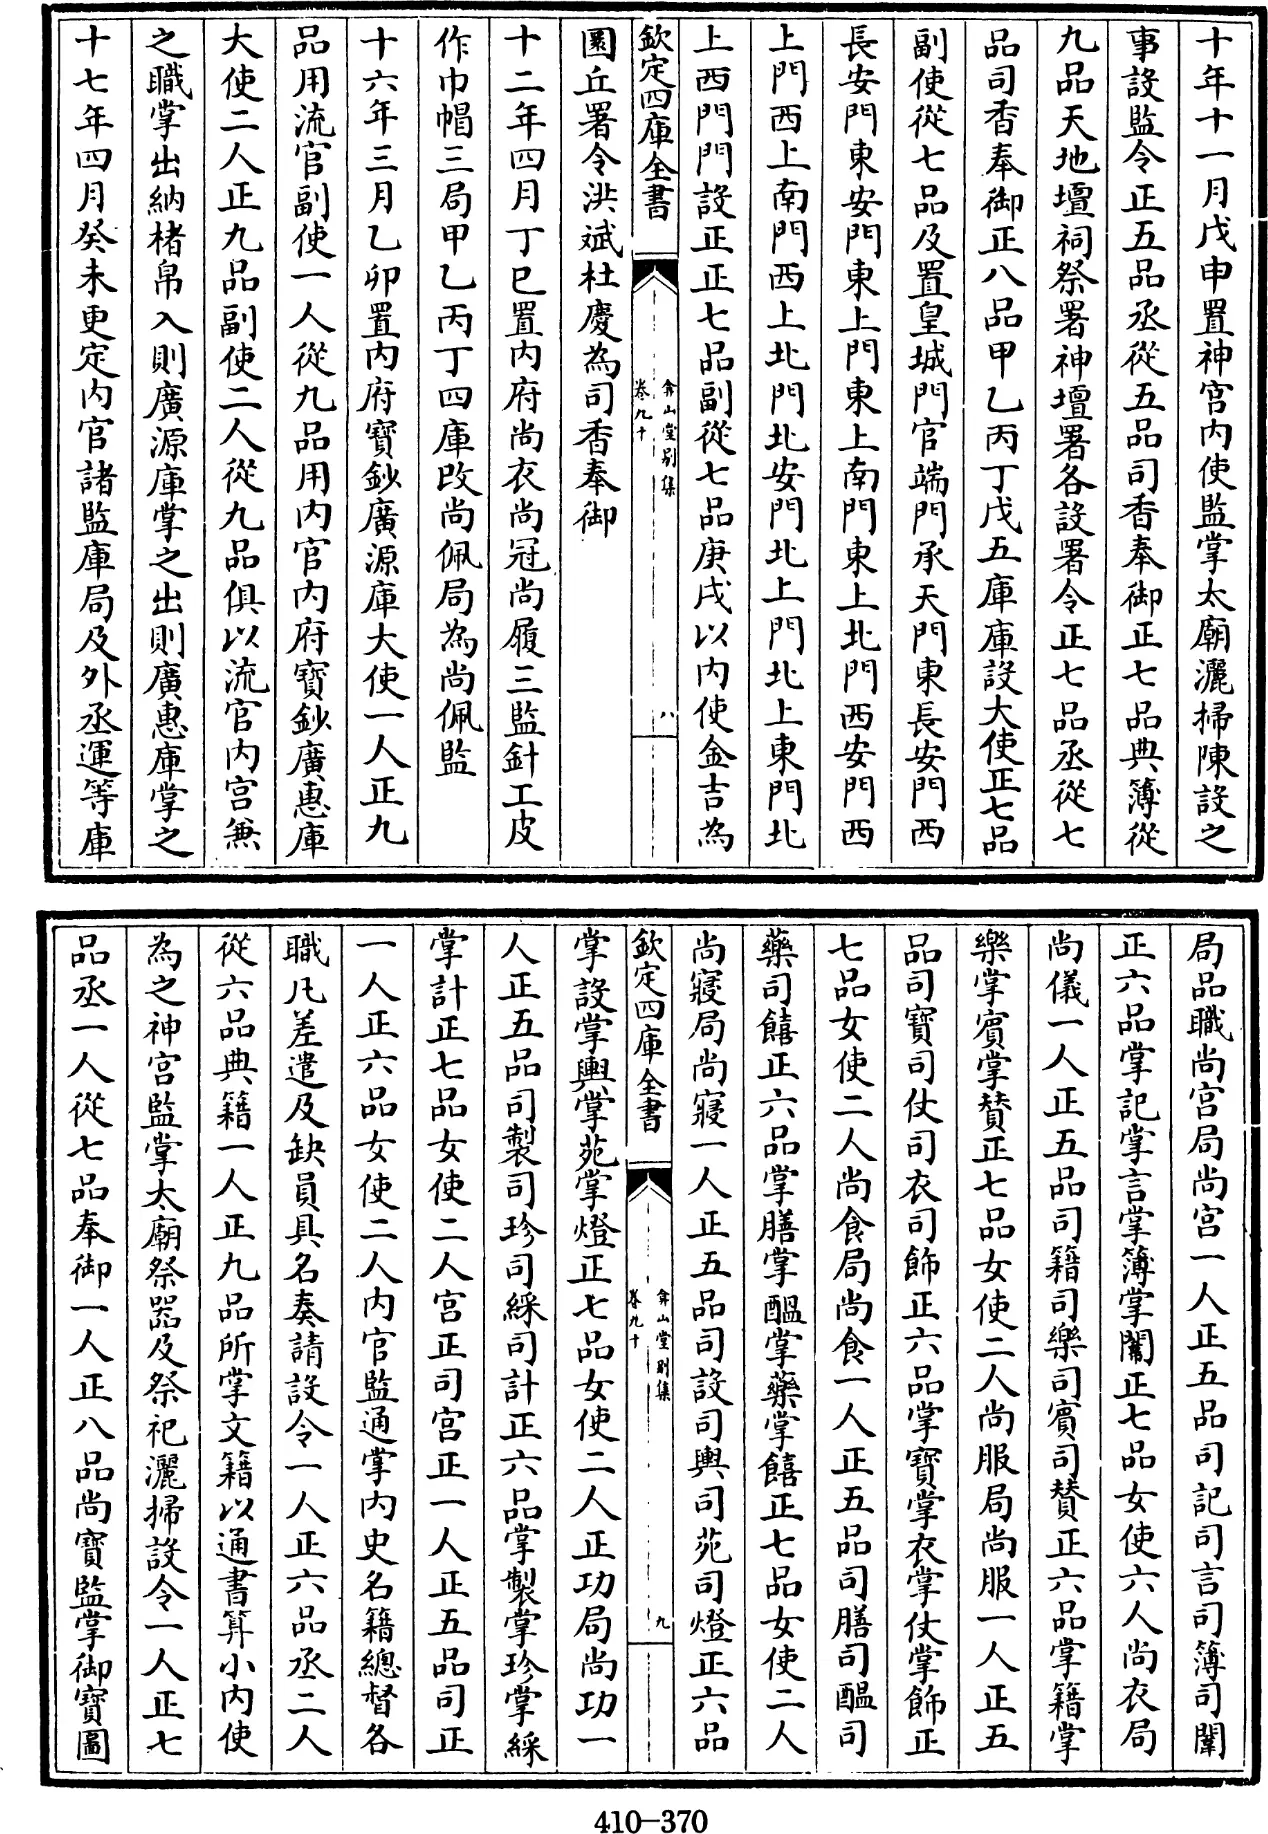 十年十一月戊申置神宫内使監掌太廟灑掃陳設之
事設監令正五品丞從五品司香奉御正七品典簿從
九品天地壇祠祭署神壇署各設署令正七品丞從七
品司香奉御正八品甲乙丙丁戊五庫庫設大使正七品
副使從七品及置皇城門官端門承天門東長安門西
長安門東安門東上門東上南門東上北門西安門西
上門西上南門西上北門北安門北上門北上東門北
上西門門設正正七品副從七品庚戌以内使金吉為
欽定四庫全書
弇山堂别集
卷九十
八
圜丘署令洪斌杜慶為司香奉御
十二年四月丁巳置内府尚衣尚冠尚履三監針工皮
作巾帽三局甲乙丙丁四庫改尚佩局為尚佩監
十六年三月乙卯置内府寶鈔廣源庫大使一人正九
品用流官副使一人從九品用内官内府寶鈔廣惠庫
大使二人正九品副使二人從九品俱以流官内宫兼
之職掌出納楮帛入則廣源庫掌之出則廣惠庫掌之
十七年四月癸未更定内官諸監庫局及外丞運等庫
局品職尚宫局尚宫一人正五品司記司言司簿司闈
正六品掌記掌言掌簿掌闈正七品女使六人尚衣局
尚儀一人正五品司籍司樂司賓司賛正六品掌籍掌
樂掌賓掌賛正七品女使二人尚服局尚服一人正五
品司寶司仗司衣司飾正六品掌寶掌衣掌仗掌飾正
七品女使二人尚食局尚食一人正五品司膳司醖司
藥司饎正六品掌膳掌醖掌藥掌饎正七品女使二人
尚寢局尚寢一人正五品司設司輿司苑司燈正六品
欽定四庫全書
弇山堂别集
卷九十
九
掌設掌輿掌苑掌燈正七品女使二人正功局尚功一
人正五品司製司珍司綵司計正六品掌製掌珍掌綵
掌計正七品女使二人宫正司宫正一人正五品司正
一人正六品女使二人内官監通掌内史名籍總督各
職凡差遣及缺員具名奏請設令一人正六品丞二人
從六品典籍一人正九品所掌文籍以通書筭小内使
為之神宫監掌太廟祭器及祭祀灑掃設令一人正七
品丞一人從七品奉御一人正八品尚寶監掌御寶圖
410-370